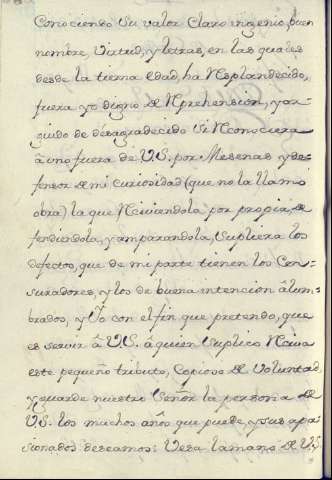 Conociendo su valor Claro ingenio, buen
nombre, Virtud, y letras, en las quales
desde la tierna edad, ha Resplandecido,
fuera yo digno de Reprehension, y ar-
guido de desagradecido si Reconociera
à uno fuera de V.S. por Mesenas y de-
fensor de mi curiosidad (que no la llamo
obra) la que Reciviendola por propia, de
fendiendola, y amparandola, Supliera los
defectos, que de mi parte tienen los Cen-
suradores, y los de buena intencion àlum-
brados, y Yo con el fin que pretendo, que
es servir à V.S. à quien Suplico Reciva
este pequeño tributo, Copioso de Voluntad,
y guarde nuestro Señor la persona de
V.S. los muchos años que puede, y sus apa-
sionados deseamos: Vesa la mano de V.S